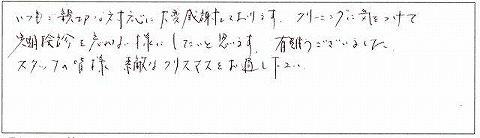 いつもご親切な対応に大変感謝しております。クリーニングに気をつけて
定期検診を忘れない様にしたいと思います。有難うございました。
スタッフの皆様 素敵なクリスマスをお過し下さい